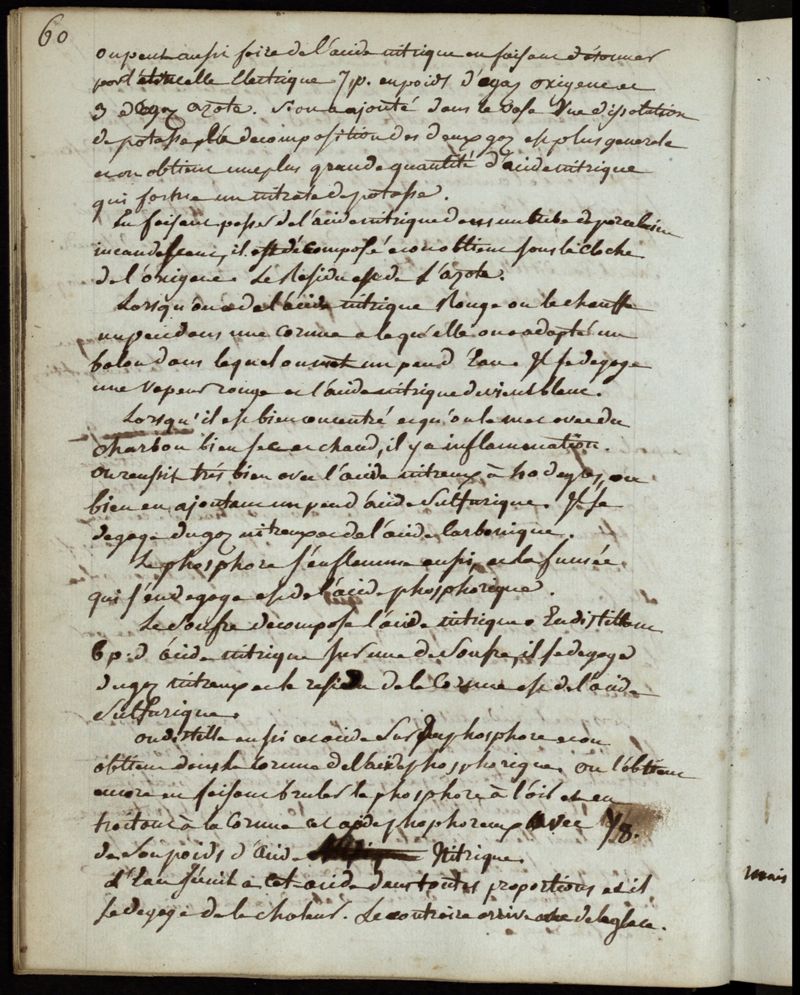 60
on peut aussi faire de l'acide nitrique en faisant détonner
par l'étincelle Electrique 7 p. en poids d'gaz oxigene et
3 d'gaz azote. Si on a ajouté dans le vase Une dissolution
de potasse la decomposition des deux gaz est plus generale
et on obtient une plus grande quantité d'acide nitrique
qui forme un nitrate de potasse.
En faisant passer de l'acide nitrique dans un tube de porcelaine
incandescent, il est décomposé et on obtient sous la cloche
de l'oxigene. Le Residu est de L'azote.
Lorsqu'on a de l'acide nitrique Rouge on le chauffe
un peu dans une Cornue a laquelle on a adapté un
balon dans lequel on met un peu d'Eau. Il se degage
une vapeur rouge et l'acide nitrique devient blanc.
Lorsqu'il est bien concentré et qu'on le met avec du
charbon bien sec et chaud, il y a inflammation.
On reussit trés bien avec l'acide nitreux à 40 degrés, ou
bien en ajoutant un peu d'acide Sulfurique. Il se
degage du gaz nitreux et de l'acide Carbonique.
Le phosphore s'enflamme aussi, et la fumée
qui s'en degage est de l'acide phosphorique.
Le Soufre decompose l'acide nitrique. En distillant
6 p: d'acide nitrique sur une de Soufre, il se degage
du gaz nitreux et le residu de la Cornue est de l'acide
Sulfurique.
On distille aussi cet acide Sur du phosphore et on
obtient dans la Cornue de l'acide phosphorique. on l'obtient
encore en faisant bruler le phosphore à l'air et en
traitant à la Cornue cet acide phosphoreux avec 1/8.
de Son poids d'acide Nitrique.
L'Eau s'unit a cet acide dans toutes proportions et il
se degage de la chaleur. Le contraire arrive avec de la glace.
mais